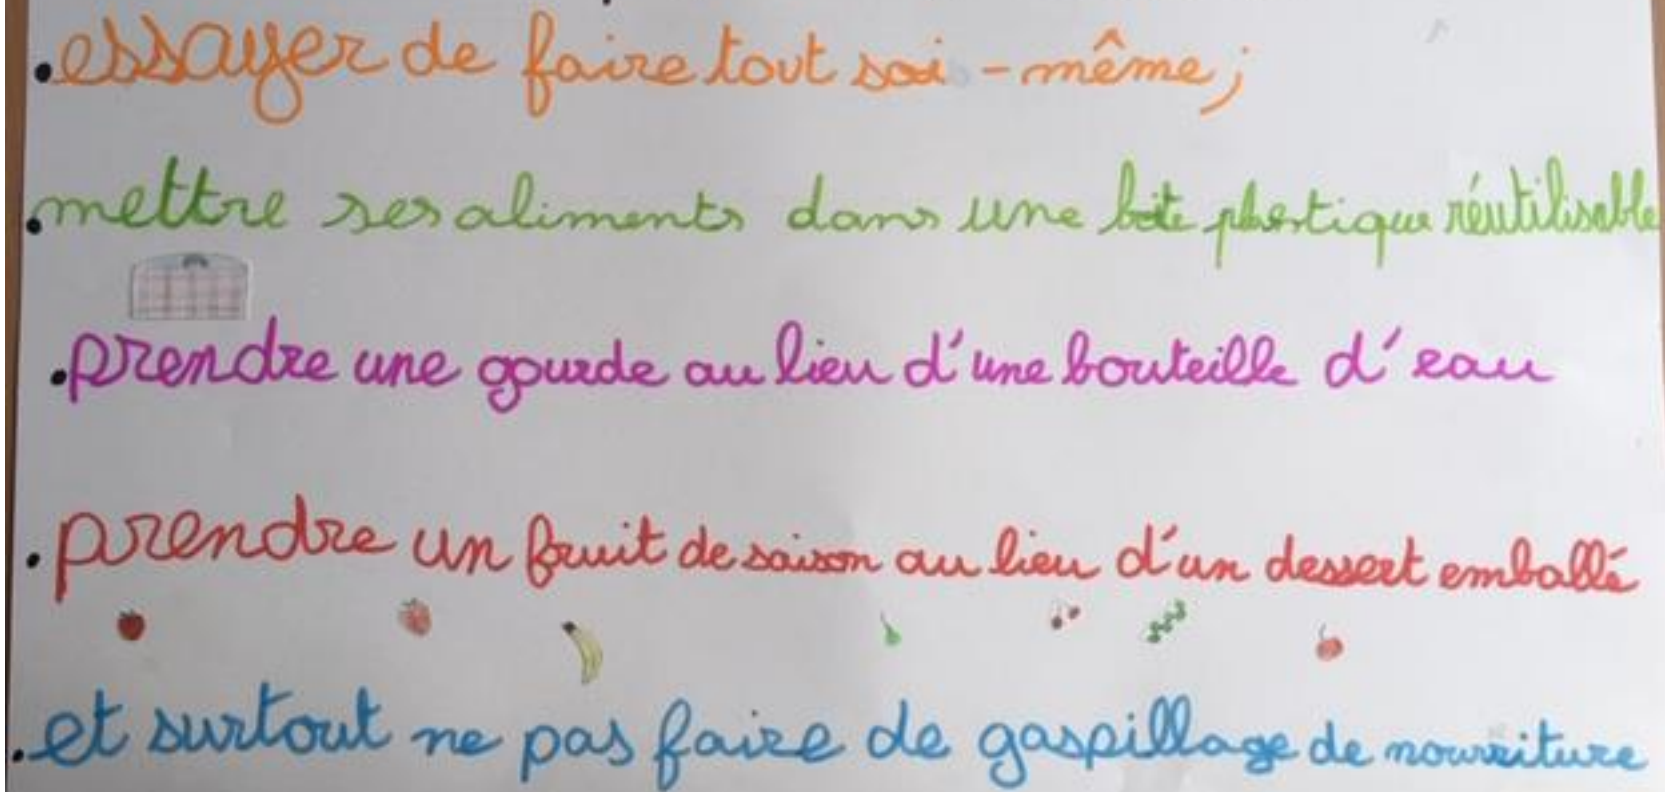 .essayer de faire tout soi-même;
.mettre ses aliments dans une boite plastique réutilisable
.prendre une gourde au lieu d'une bouteille d'eau
.prendre un fruit de saison au lieu d'un dessert emballé
.et surtout ne pas faire de gaspillage de nourriture